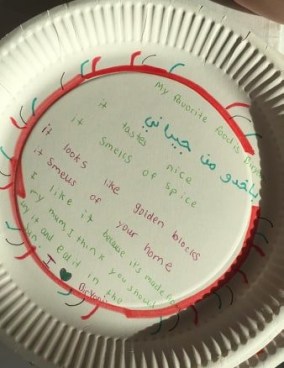 My favorite food is
ياخدو من جيراني
it tastes nice
it smells of spice
it looks like golden blocks
it smells of your home
I like it because it's made
my mum, I think you should
it and eat it in the
I ♥